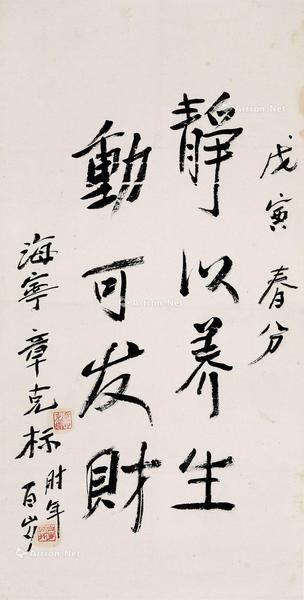 戊寅春分
靜以养生
動可发財
海寧章克标
时年百岁